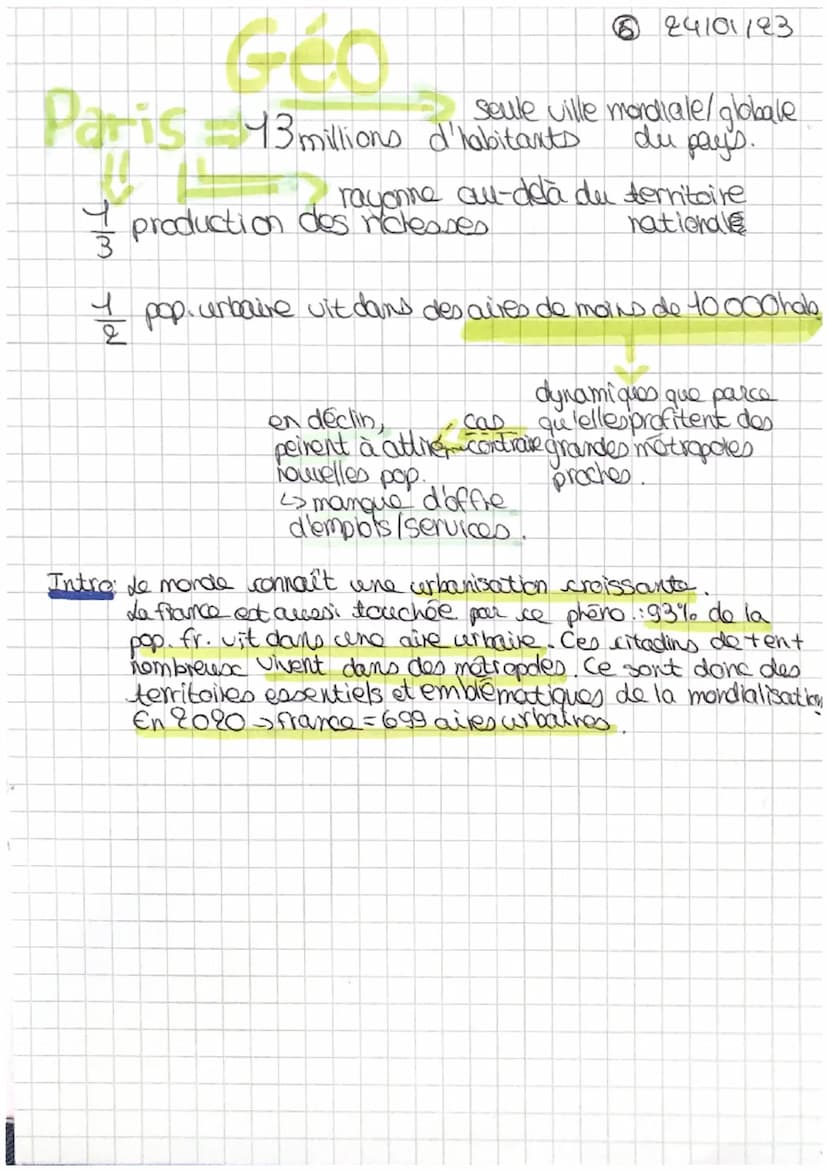 ⑤ 24/01/23
Géo
Paris => 13 millions d'habitants
seule ville mondiale/globale
du pays.
rayonne au-delà du territoire
nationale
1/3 production des richesses
1/2 pop. urbaine vit dans des aires de moins de 10 000 hab.
dynamiques que parce
qu'elles profitent des
grandes métropoles
proches.
cas
contraire
en déclin,
peinent à attirer
nouvelles pop.
↳ manque d'offre
d'emplois/services.
Intro: Le monde connaît une urbanisation croissante.
La france est aussi touchée par ce phéno.: 93% de la
pop. fr. vit dans une aire urbaine. Ces citadins de + en +
nombreux vivent dans des métropoles. Ce sont donc des
territoires essentiels et emblématiques de la mondialisation.
En 2020 → france = 699 aires urbaines.